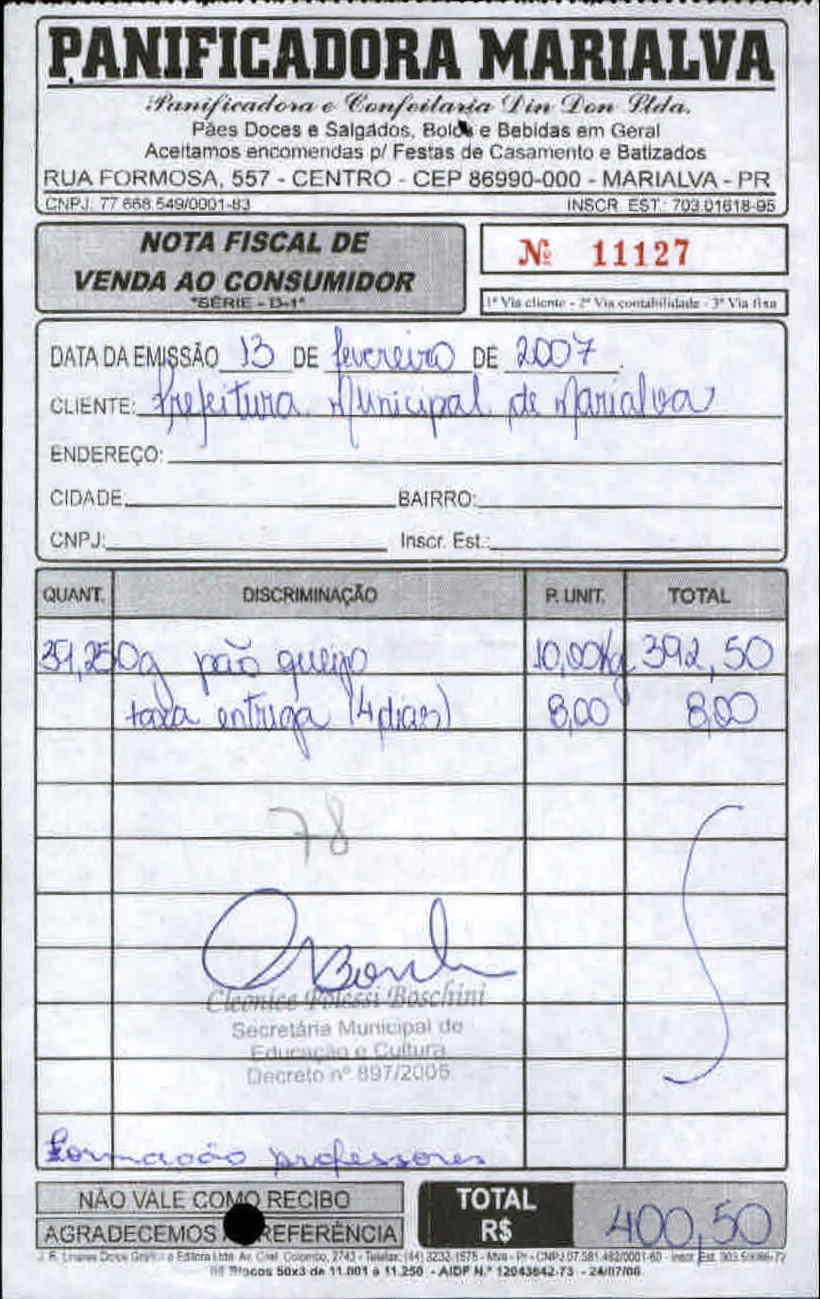 PANIFICADORA MARIALVA
Panificadora e Confeitaria Din Don Ltda.
Pães Doces e Salgados, Bolos e Bebidas em Geral
Aceitamos encomendas p/ Festas de Casamento e Batizados
RUA FORMOSA, 557 - CENTRO - CEP 86990-000 - MARIALVA - PR
CNPJ. 77 668 549/0001-83 INSCR. EST.: 703.01618-95
NOTA FISCAL DE
VENDA AO CONSUMIDOR
"SÉRIE - D-1"
Nº 11127
1ª Via cliente - 2ª Via contabilidade - 3ª Via fixa
DATA DA EMISSÃO 13 DE fevereiro DE 2007
CLIENTE: Prefeitura Municipal de Marialva
ENDEREÇO:
CIDADE BAIRRO:
CNPJ: Inscr. Est.:
QUANT. DISCRIMINAÇÃO P. UNIT. TOTAL
39,250g pão queijo 10,00Kg 392,50
taxa entrega (4 dias) 8,00 8,00
78
Cleonice Polessi Boschini
Secretária Municipal de
Educação e Cultura
Decreto nº 897/2005
Formação professores
NÃO VALE COMO RECIBO
AGRADECEMOS A PREFERÊNCIA
TOTAL
R$ 400,50
Av. Cristi. Colombo, 2743 - Telefax: (44) 3232-1575 - Mva - Pr - CNPJ 07.581.482/0001-60
Blocos 50x3 de 11.001 a 11.250 - AIDF N.º 12043642-73 - 24/07/06